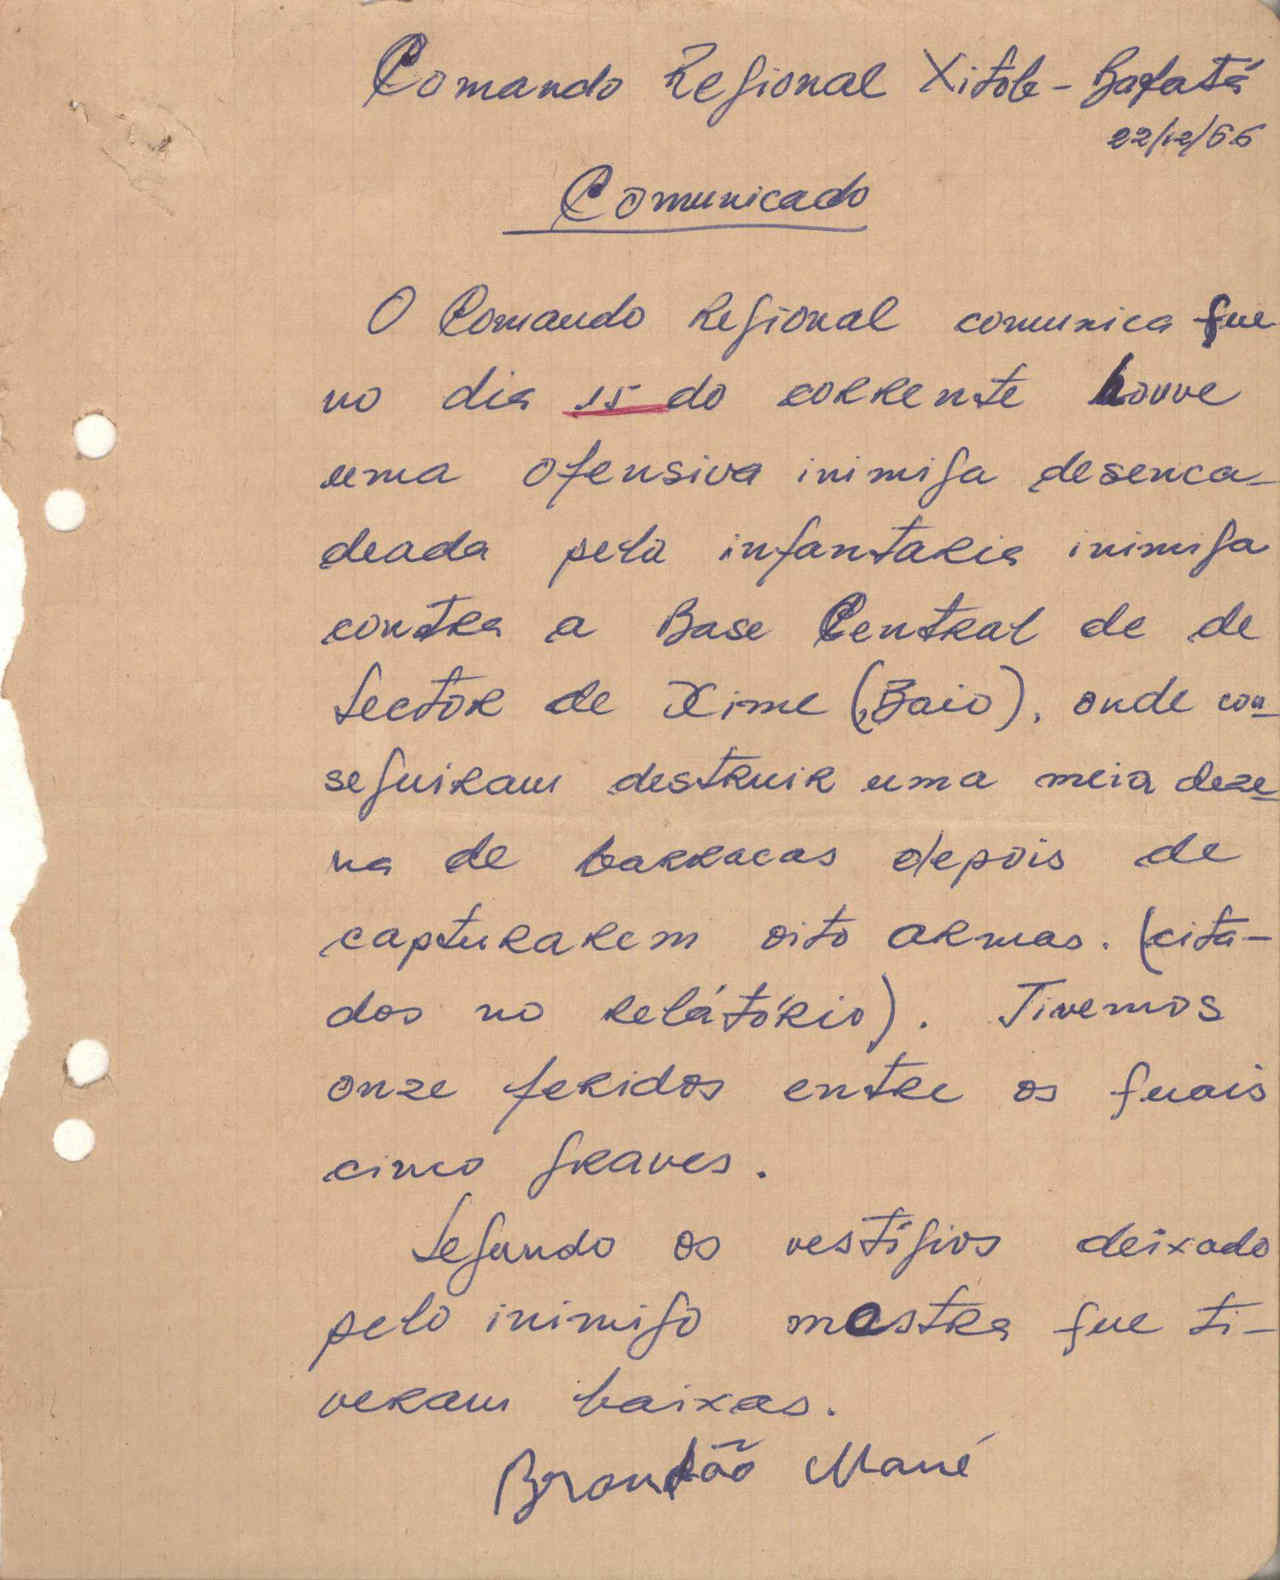 Comando Regional Xitole - Bafatá
22/12/66
Comunicado
O Comando Regional comunica que
no dia 15 do corrente houve
uma ofensiva inimiga desenca-
deada pela infantaria inimiga
contra a Base Central de de
Sector de Xime (Baio), onde con-
seguiram destruir uma meia deze-
na de barracas depois de
capturarem oito armas. (cita-
dos no relátório). Tivemos
onze feridos entre os quais
cinco graves.
Segundo os vestígios deixado
pelo inimigo mostra que ti-
veram baixas.
Brandão Mané